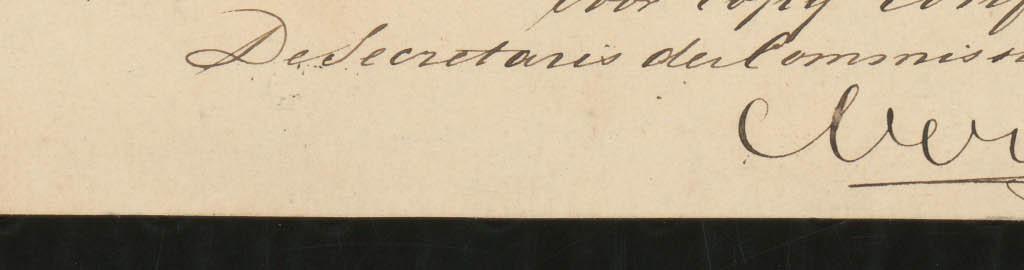 voor copy conf
De Secretaris der Commissi